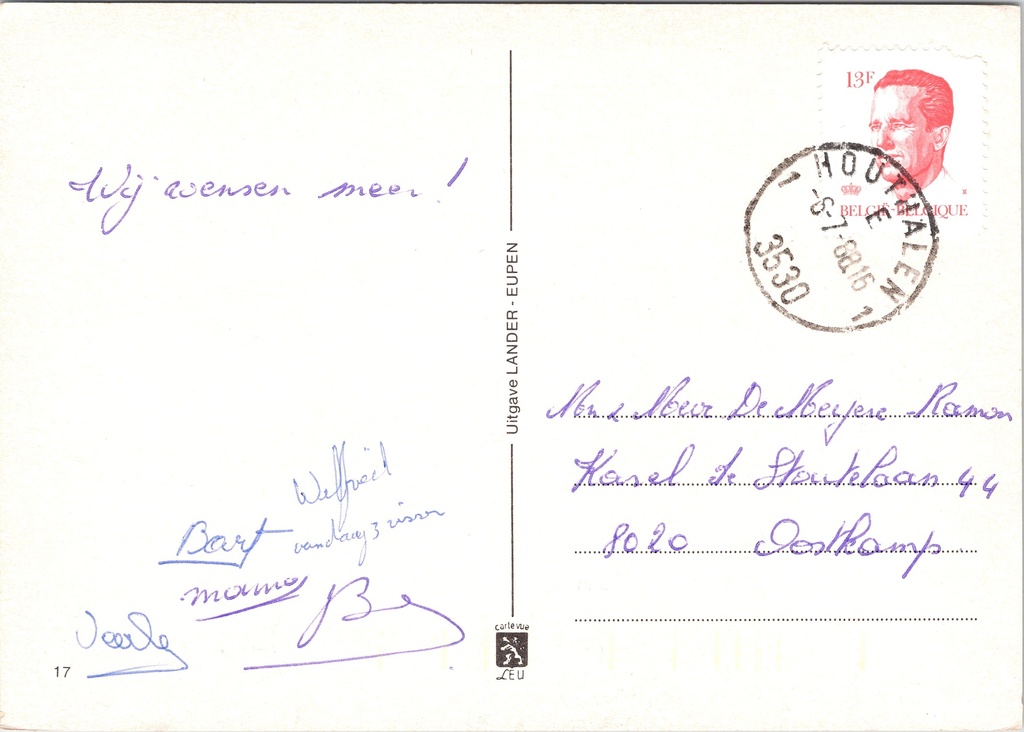 Wij wensen meer!
Wilfried
vandaag 3 vissen
Bart
mama
Veerle
17
Uitgave LANDER - EUPEN
carte vue
LEU
13F
BELGIË-BELGIQUE
HOUTHALEN
1 E 1
-6-7-88 16
3530
Mr & Mevr De Meyere-Ramon
Karel de Stoutelaan 44
8020 Oostkamp